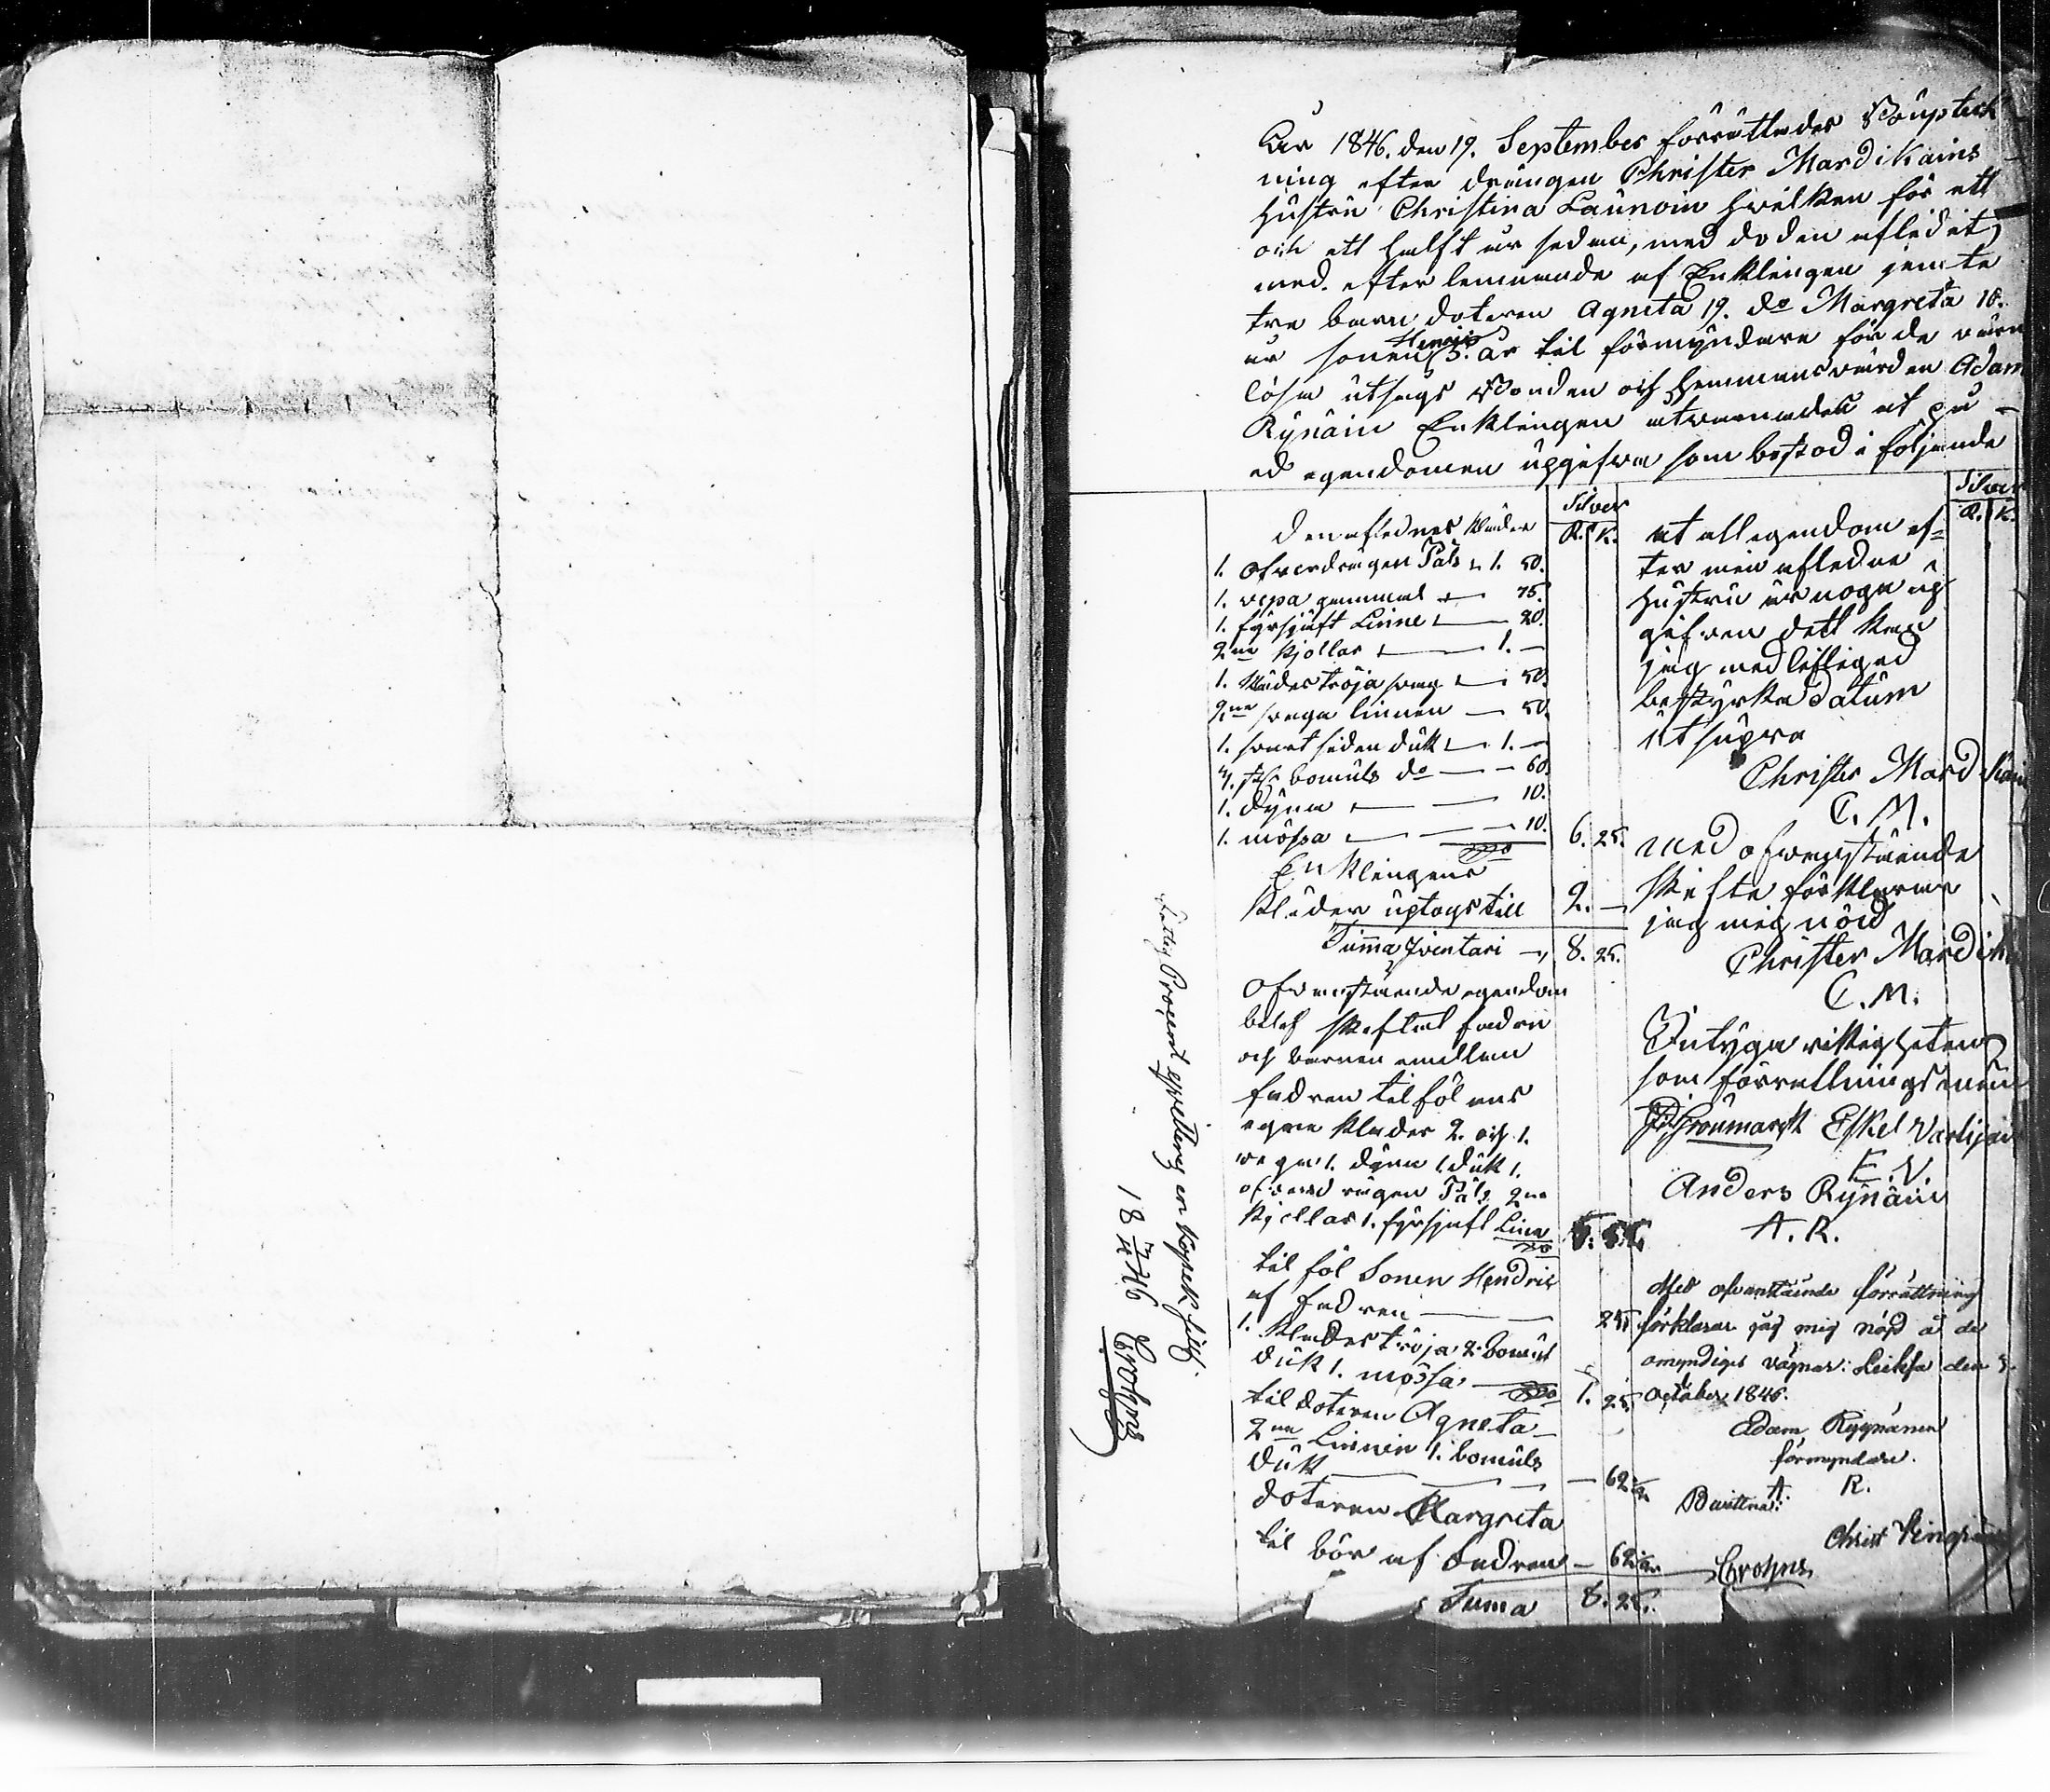 År 1846. den 19. September förrättades Bouptek
ning efter drängen Christer Mardikains
hustru Christina Launoin hvilken för ett
och ett halft år sedan, med döden aflidit,
med. efterlemnande af Enklingen jemte
tre barn dotren Agneta 19. do Margreta 18.
år sonen Henric 3. år til förmyndare för de värn
lösa utsågs Bonden och hemmansvärden Adam
Rynäin Enklingen utvarnades at på
ed egendomen upgifva som bestod i följande
den aflednes kläder
Silver
R. K.
1. ofverdragen Päls 1. 50.
1. vepa gammal 75.
1. fyrskaft Linne 20.
2ne kjollar 1. —
1. klädeströja 50.
2ne linnen — 50.
1. svart siden duk 1. —
4. st. bomuls do — 60.
1. dyna — 10.
1. mössa — 10. 6. 25.
Enklingens
kläder uptogs till 2. —
Summa Iventari — 8. 25.
Ofvanstående egendom
blef skiftat fadren
och barnen emellan
fadren tilföl ens
egna kläder 2. och 1.
1. dyna 1 duk 1.
ofverdragen Päls 2ne
kjollar 1. fyrskaft Linne
til föl Sonen Hendric
af fadren — 25
1. klädeströja 2. bomuls
duk 1. mössa 1. 25.
til dotren Agneta
2ne Linnen 1. bomuls
duk — 62 1/2
dotren Margreta
til bör af Fadren — 62 1/2
Suma 8. 25.
Silver
R. K.
at all egendom ef=
ter min afledne
hustru är noga up
gifven dett kan
jag med liflig ed
bestyrka Datum
ut supra
Christer Mardikain
C. M.
Med ofvanstående
skifte förklarar
jag mig nöid
Christer Mardik
C. M.
Intyga riktigheten
som förrättningsmän
Grönmarck Eskel Vartijain
E. V.
Anders Rynäin
A. R.
Med ofvanstående förrättning
förklarar jag mig nöjd å de
omyndiges vägnar: den
October 1846.
Adam Ryynänen
förmyndare.
A. R.
Bevittna:
Christ
Crohns
Fattig Procent en kopek silf.
18 46 Crohns